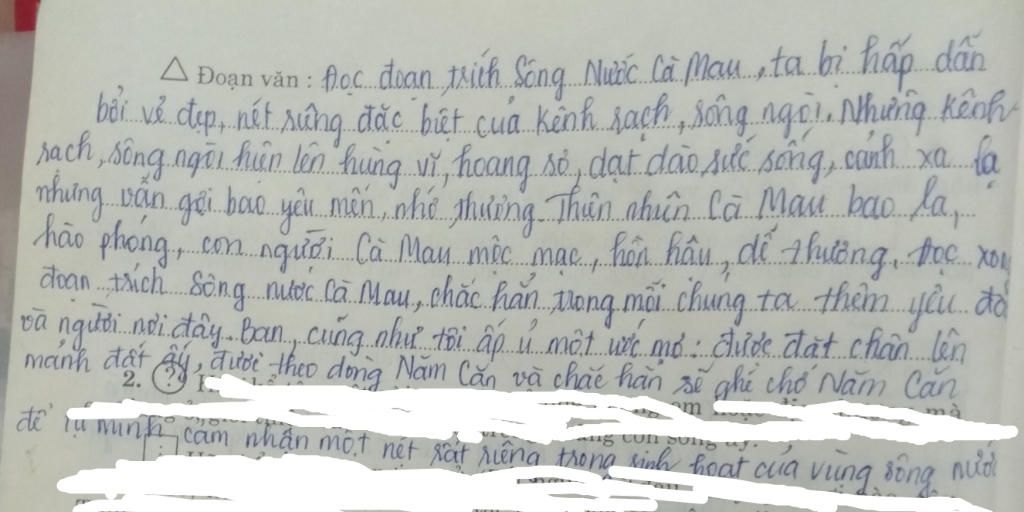 △ Đoạn văn : Đọc đoạn trích Sông Nước Cà Mau, ta bị hấp dẫn
bởi vẻ đẹp, nét riêng đặc biệt của kênh rạch, sông ngòi. Những kênh
rạch, sông ngòi hiện lên hùng vĩ, hoang sơ, dạt dào sức sống, cảnh xa lạ
nhưng vẫn gợi bao yêu mến, nhớ thương. Thiên nhiên Cà Mau bao la,
hào phóng, con người Cà Mau mộc mạc, hồn hậu, dễ thương. Đọc xong
đoạn trích Sông nước Cà Mau, chắc hẳn trong mỗi chúng ta thêm yêu đất
và người nơi đây. Bạn, cũng như tôi ấp ủ một ước mơ: được đặt chân lên
mảnh đất ấy, được theo dòng Năm Căn và chắc hẳn sẽ ghé chợ Năm Căn
2.
để tự mình cảm nhận một nét rất riêng trong sinh hoạt của vùng sông nước